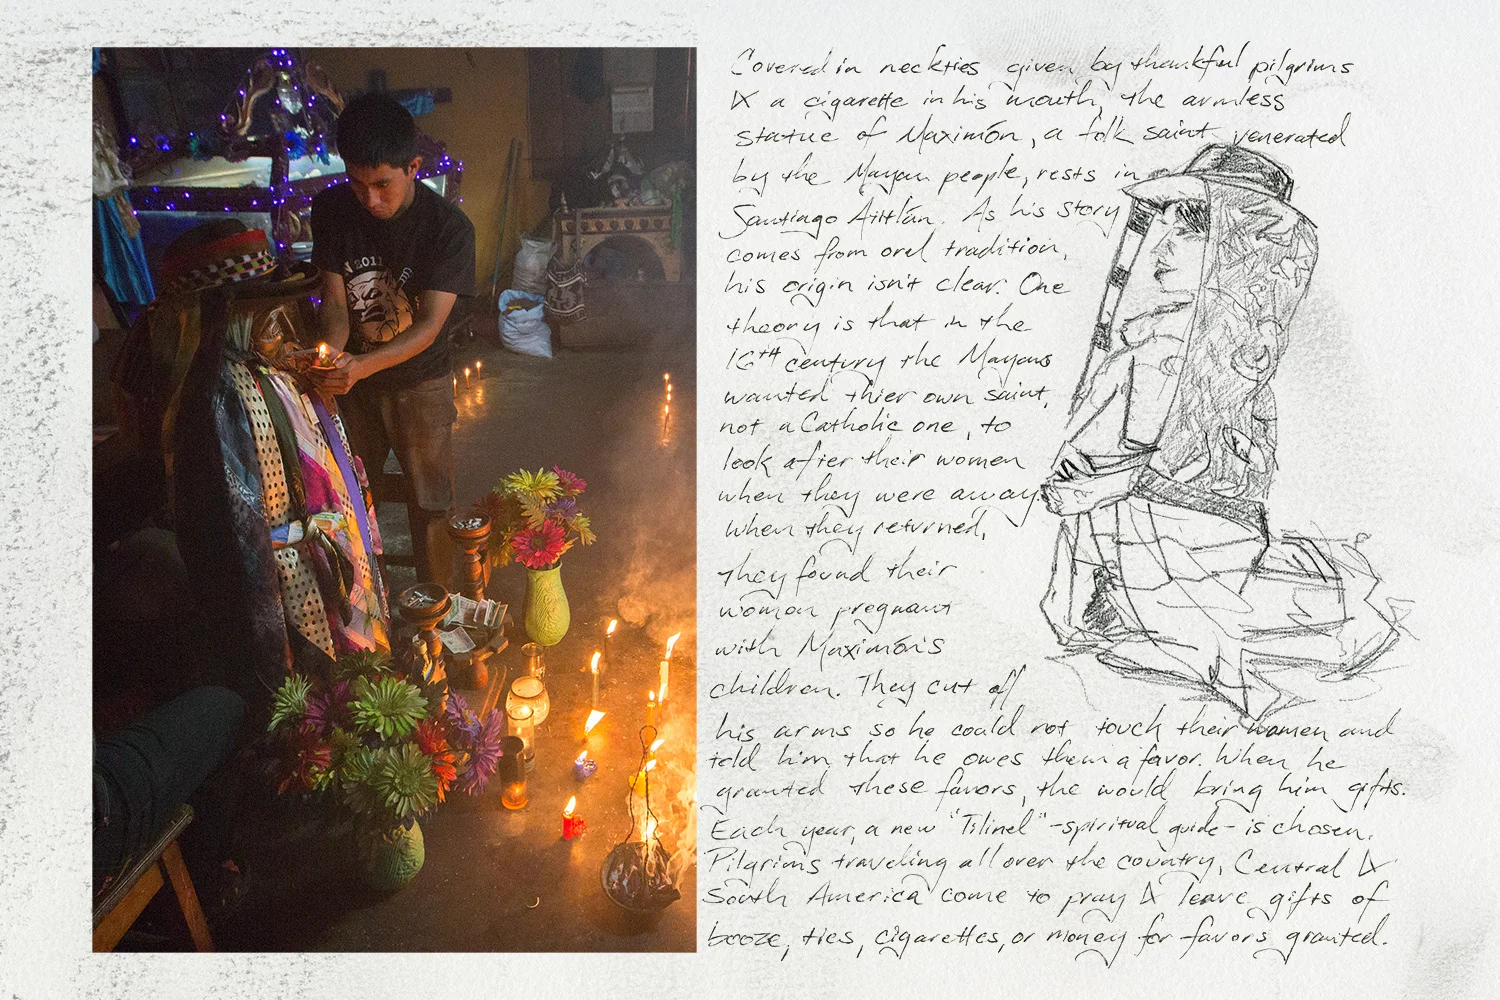 N 2011
Covered in neckties given by thankful pilgrims
& a cigarette in his mouth, the armless
statue of Maximón, a folk saint venerated
by the Mayan people, rests in
Santiago Atitlán. As his story
comes from oral tradition,
his origin isn't clear. One
theory is that in the
16th century the Mayans
wanted thier own saint,
not a Catholic one, to
look after their women
when they were away.
When they returned,
they found their
woman pregnant
with Maximón's
children. They cut off
his arms so he could not touch their women and
told him that he owes them a favor. When he
granted these favors, the would bring him gifts.
Each year, a new "Tilinel" -spiritual guide- is chosen.
Pilgrims traveling all over the country, Central &
South America come to pray & leave gifts of
booze, ties, cigarettes, or money for favors granted.